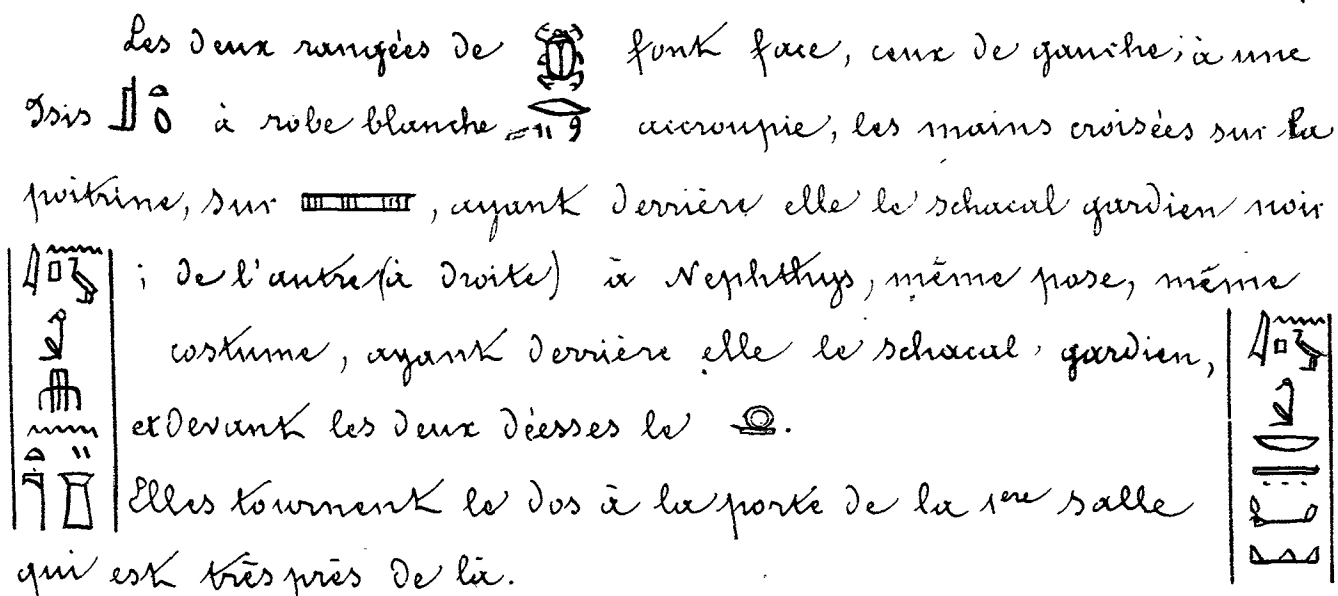 Les deux rangées de 𓆣 font face, ceux de gauche, à une
Isis 𓊨𓏏𓆇 à robe blanche accroupie, les mains croisées sur la
poitrine, sur 𓈅, ayant derrière elle le schacal gardien noir
; de l'autre (à droite) à Nephthys, même pose, même
costume, ayant derrière elle le schacal gardien,
et devant les deux déesses le 𓍶.
Elles tournent le dos à la porte de la 1ere salle
qui est très près de là.